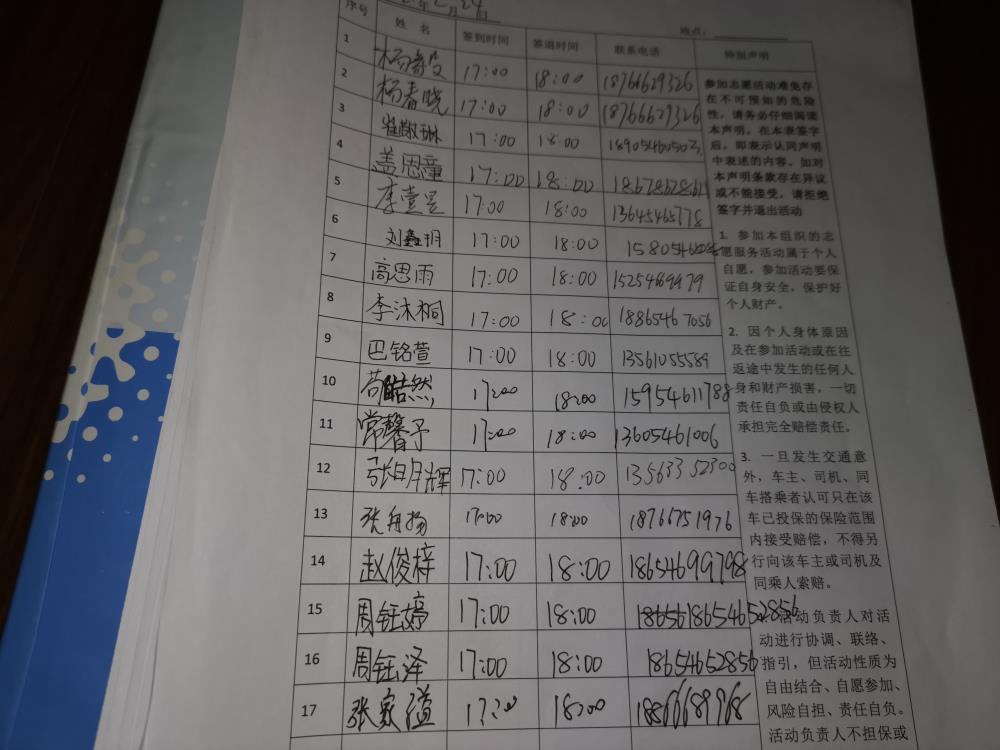 年2月24日
地点：
序号 姓 名 签到时间 签退时间 联系电话 特别声明
1 杨毅 17:00 18:00 18766629326
2 杨春晓 17:00 18:00 18766629326
3 崔敬琳 17:00 18:00 18905460503
4 盖思童 17:00 18:00
5 李壹昱 17:00 18:00 13645465778
6 刘鑫玥 17:00 18:00
7 高思雨 17:00 18:00
8 李沐桐 17:00 18:00 18865467056
9 巴铭萱 17:00 18:00 13561055589
10 苟皓然 17:00 18:00 15954611788
11 常馨予 17:00 18:00 13605461006
12 张月辉 17:00 18:00 13563352300
13 张舟扬 17:00 18:00 18766751976
14 赵俊梓 17:00 18:00 18654699798
15 周钰婷 17:00 18:00 18654652856
16 周钰泽 17:00 18:00 18654652856
17 张家溢 17:00 18:00 18866689968
参加志愿活动难免存
在不可预知的危险
性，请务必仔细阅读
本声明，在本表签字
后，即表示认同声明
中表述的内容。如对
本声明条款存在异议
或不能接受，请拒绝
签字并退出活动
1. 参加本组织的志
愿服务活动属于个人
自愿，参加活动要保
证自身安全，保护好
个人财产。
2. 因个人身体原因
及在参加活动或在往
返途中发生的任何人
身和财产损害，一切
责任自负或由侵权人
承担完全赔偿责任。
3. 一旦发生交通意
外，车主、司机、同
车搭乘者认可只在该
车已投保的保险范围
内接受赔偿，不得另
行向该车主或司机及
同乘人索赔。
活动负责人对活
动进行协调、联络、
指引，但活动性质为
自由结合、自愿参加、
风险自担、责任自负。
活动负责人不担保或